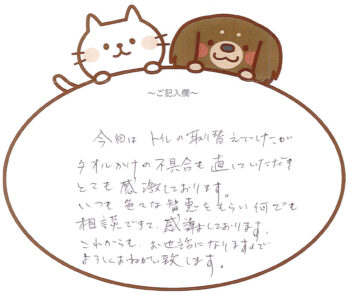 ～ご記入欄～
今回は トイレの取り替えでしたが
タオルかけの不具合も直していただき
とても感激しております。
いつも色々な知恵をもらい何でも
相談できて、感謝しております。
これからも、お世話になりますので
よろしくおねがい致します。